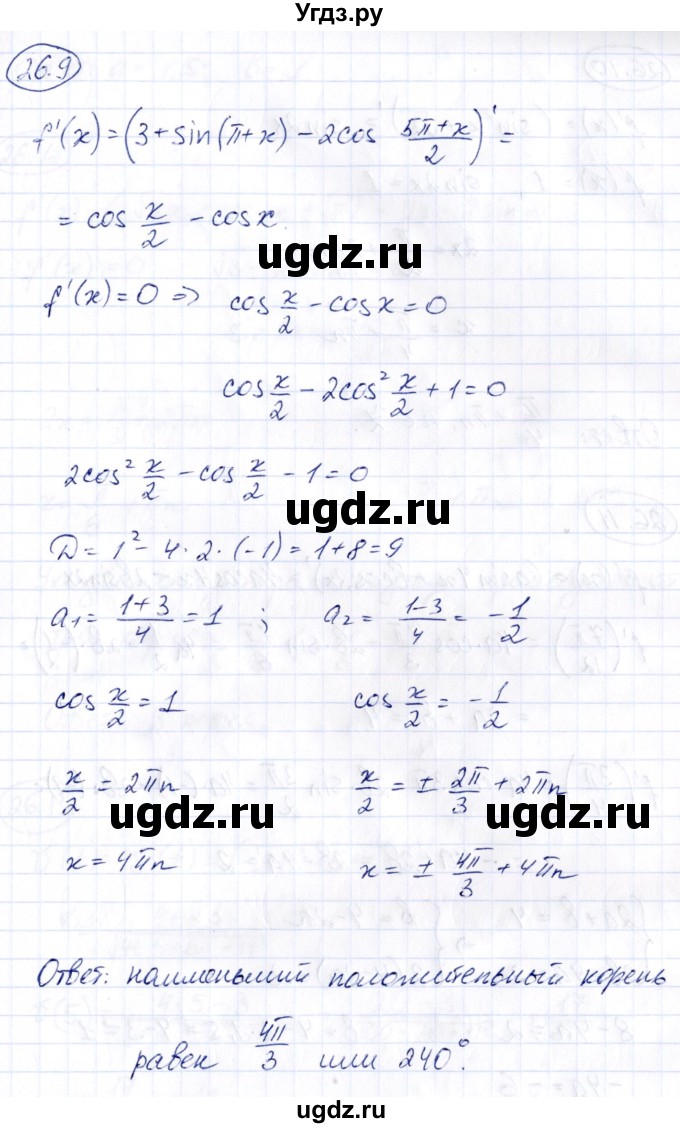 Угдз.ру
26.9
f'(x) = (3 + sin(π+x) − 2cos (5π+x)/2)' =
= cos x/2 − cosx.
ugdz.ru
f'(x) = 0 => cos x/2 − cos x = 0
cos x/2 − 2cos² x/2 + 1 = 0
2cos² x/2 − cos x/2 − 1 = 0
ugdz.ru
D = 1² − 4 · 2 · (−1) = 1 + 8 = 9
a₁ = (1+3)/4 = 1 ; a₂ = (1−3)/4 = −1/2
cos x/2 = 1 cos x/2 = −1/2
x/2 = 2πn x/2 = ± 2π/3 + 2πn
ugdz.ru ugdz.ru
x = 4πn x = ± 4π/3 + 4πn
Ответ: наименьший положительный корень
равен 4π/3 или 240°.
ugdz.ru